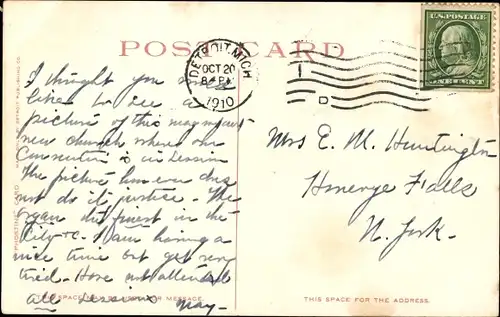 POST CARD
DETROIT, MICH
OCT 20
8 PM
1910
U.S. POSTAGE
ONE CENT
I thought you would
like to see a
picture of this magnificent
new church where our
Convention is in session
The picture however does
not do it justice. The
organ the finest in the
City &c. I am having a
nice time but get very
tired. Have not attended
all sessions May-
Mrs E. M. Huntington
Honeoye Falls
N. York.
PHOSTINT CARD
DETROIT PUBLISHING CO.
THIS SPACE FOR MESSAGE.
THIS SPACE FOR THE ADDRESS.